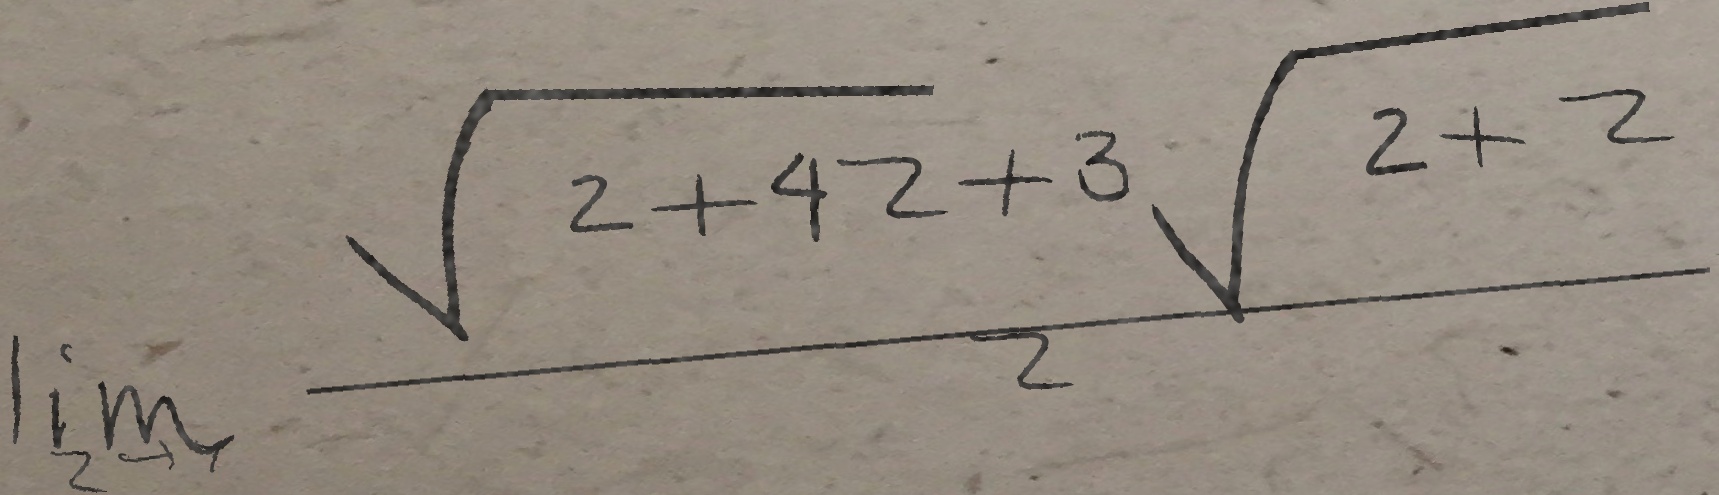 lim z→1 (√(2+4z)+3√(2+z))/z